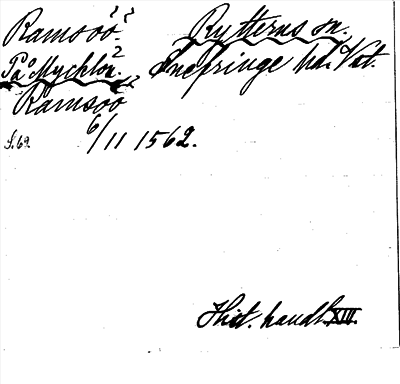 Ramsöö. Rytterns sn.
På Mychlöö. Snefringe hd. Vst.
Ramsöö
6/11 1562.
s. 69
Hist. handl. XIII.